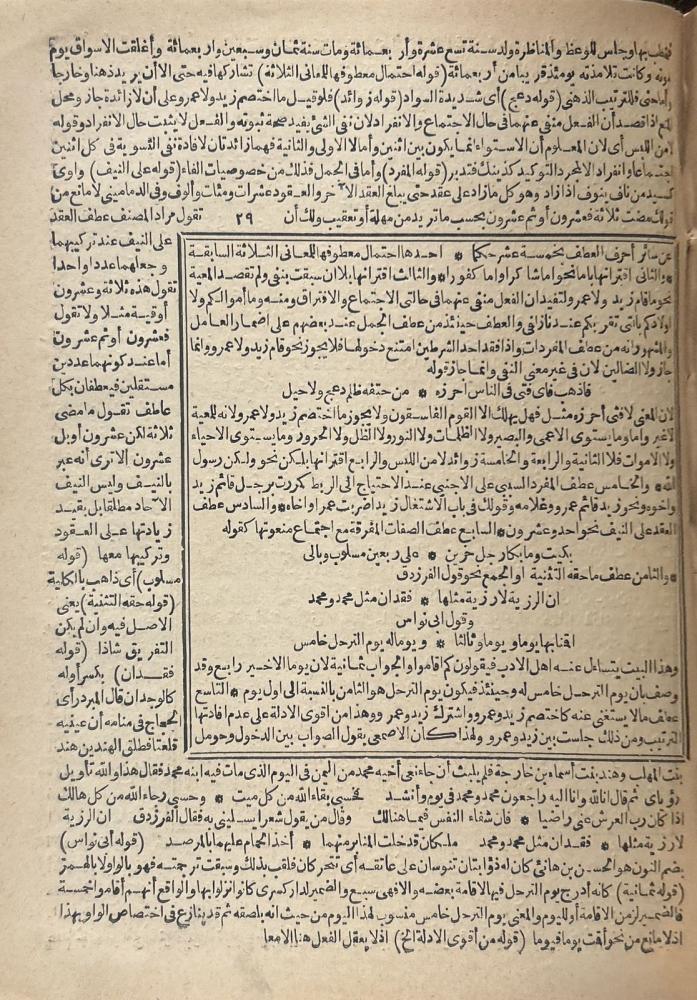 فخطب بها وجلس للوعظ والمناظرة ولد سنة تسع عشرة وأربعمائة ومات سنة ثمان وسبعين وأربعمائة وأغلقت الاسواق يوم
موته وكانت تلامذته يومئذ قريبا من أربعمائة (قوله احتمال معطوفها للمعانى الثلاثة) تشاركها فيه حتى الا أن يريد ذهنا وخارجا
وأما حتى فللترتيب الذهنى (قوله دعج) أى شديدة السواد (قوله زوائد) فلو قيل ما اختصم زيد ولا عمرو على أن لا زائدة جاز ومحل
المنع اذا قصد أن الفعل منفى عنهما فى حال الاجتماع والانفراد لان نفى الشئ يفيد صحة ثبوته والفعل لا يثبت حال الانفراد وقوله
أمن اللبس أى لان المعلوم أن الاستواء انما يكون بين اثنين وأما لا الاولى والثانية فهما زائدتان لافادة نفى التسوية فى كل اثنين
اجتماعا وانفرادا لا لمجرد التوكيد كذينك فتدبر (قوله المفرد) وأما فى الجمل فذلك من خصوصيات الفاء (قوله على النيف) واوى
كسيد من ناف ينوف اذا زاد وهو كل مازاد على عقد حتى يبلغ العقد الآخر والعقود عشرات ومئات وألوف وفى الدمامينى لا مانع من
قولك مضت ثلاثة فعشرون أو ثم عشرون بحسب ما تريد من مهلة أو تعقيب ولك أن
٢٩
نقول مراد المصنف عطف العقد
على النيف عند تركيبهما
وجعلهما عددا واحدا
تقول هذه ثلاثة وعشرون
أوقية مثلا ولا تقول
فعشرون أو ثم عشرون
أما عند كونهما عددين
مستقلين فيعطفان بكل
عاطف تقول ما مضى
ثلاثة لكن عشرون أو بل
عشرون ألا ترى أنه عبر
بالنيف وليس النيف
الآحاد مطلقا بل بقيد
زيادتها على العقود
وتركيبها معها (قوله
مسلوب) أى ذاهب بالكلية
(قوله حقه التثنية) يعنى
الاصل فيه وان لم يكن
التفريق شاذا (قوله
فقدان) بكسر أوله
كالوجدان قال المبرد رأى
الحجاج فى منامه أن عينيه
قلعتا فطلق الهندين هند
عن سائر أحرف العطف بخمسة عشر حكما * احدها احتمال معطوفها للمعانى الثلاثة السابقة
* والثانى اقترانها باما نحو اما شاكرا واما كفورا * والثالث اقترانها بلا ان سبقت بنفى ولم تقصد المعية
نحو ما قام زيد ولا عمرو ولتفيد ان الفعل منفى عنهما فى حالتى الاجتماع والافتراق ومنه وما أموالكم ولا
أولادكم بالتى تقربكم عندنا زلفى والعطف حينئذ من عطف الجمل عند بعضهم على اضمار العامل
والمشهور انه من عطف المفردات واذا فقد احد الشرطين امتنع دخولها فلا يجوز نحو قام زيد ولا عمرو وانما
جاز ولا الضالين لان فى غير معنى النفى وانما جاز قوله
فاذهب فاى فتى فى الناس أحرزه * من حتفه ظلم دعج ولا حيل
لان المعنى لا فتى أحرزه مثل فهل يهلك الا القوم الفاسقون ولا يجوز ما اختصم زيد ولا عمرو لانه للمعية
لا غير واما وما يستوى الاعمى والبصير ولا الظلمات ولا النور ولا الظل ولا الحرور وما يستوى الاحياء
ولا الاموات فلا الثانية والرابعة والخامسة زوائد لا من اللبس والرابع اقترانها بلكن نحو ولكن رسول
الله * والخامس عطف المفرد السببى على الاجنبى عند الاحتياج الى الربط كمررت برجل قائم زيد
وأخوه ونحو زيد قائم عمرو وغلامه وقولك فى باب الاشتغال زيدا ضربت عمرا واخاه * والسادس عطف
العقد على النيف نحو احد وعشرون * السابع عطف الصفات المفرقة مع اجتماع منعوتها كقوله
بكيت وما بكا رجل حزين * على ربعين مسلوب وبالى
* والثامن عطف ما حقه التثنية او الجمع نحو قول الفرزدق
ان الرزية لا رزية مثلها * فقدان مثل محمد ومحمد
وقول ابى نواس
اقمنا بها يوما ويوما وثالثا * ويوما له يوم الترحل خامس
وهذا البيت يتساءل عنه اهل الادب فيقولون كم اقاموا والجواب ثمانية لان يوما الاخير رابع وقد
وصف بان يوم الترحل خامس له وحينئذ فيكون يوم الترحل هو الثامن بالنسبة الى اول يوم * التاسع
عطف ما لا يستغنى عنه كاختصم زيد وعمرو واشترك زيد وعمرو وهذا من اقوى الادلة على عدم افادتها
الترتيب ومن ذلك جلست بين زيد وعمرو ولهذا كان الاصمعى يقول الصواب بين الدخول وحومل
بنت المهلب وهند بنت أسماء بن خارجة فلم يلبث أن جاء نعى أخيه محمد من اليمن فى اليوم الذى مات فيه ابنه محمد فقال هذا والله تأويل
رؤياى ثم قال انا لله وانا اليه راجعون محمد ومحمد فى يوم وأنشد فحسبى بقاء الله من كل ميت * وحسبى رجاء الله من كل هالك
اذا كان رب العرش عنى راضيا * فان شفاء النفس فيما هنالك وقال من يقول شعرا يسلينى به فقال الفرزدق ان الرزية
لا رزية مثلها * فقدان مثل محمد ومحمد ملكان قد خلت المنابر منهما * أخذ الحمام عليهما بالمرصد (قوله أبى نواس)
بضم النون هو الحسن بن هانئ كان له ذؤابتان تنوسان على عاتقه أى تتحركان فلقب بذلك وسبقت ترجمته فهو بالواو لا بالهمز
(قوله ثمانية) كانه أدرج يوم الترحل فيها لاقامة بعضه والا فهى سبع والضمير لدار كسرى كانوا نزلوا بها والواقع أنهم أقاموا خمسة
فالضمير لزمن الاقامة أو لليوم والمعنى يوم الترحل خامس منسوب لهذا اليوم من حيث انه يلصقه ثم قد ينازع فى اختصاص الواو بهذا
اذ لا مانع من نحو أقمت يوما فيوما (قوله من أقوى الادلة الخ) اذ لا يعقل الفعل هنا الا معا